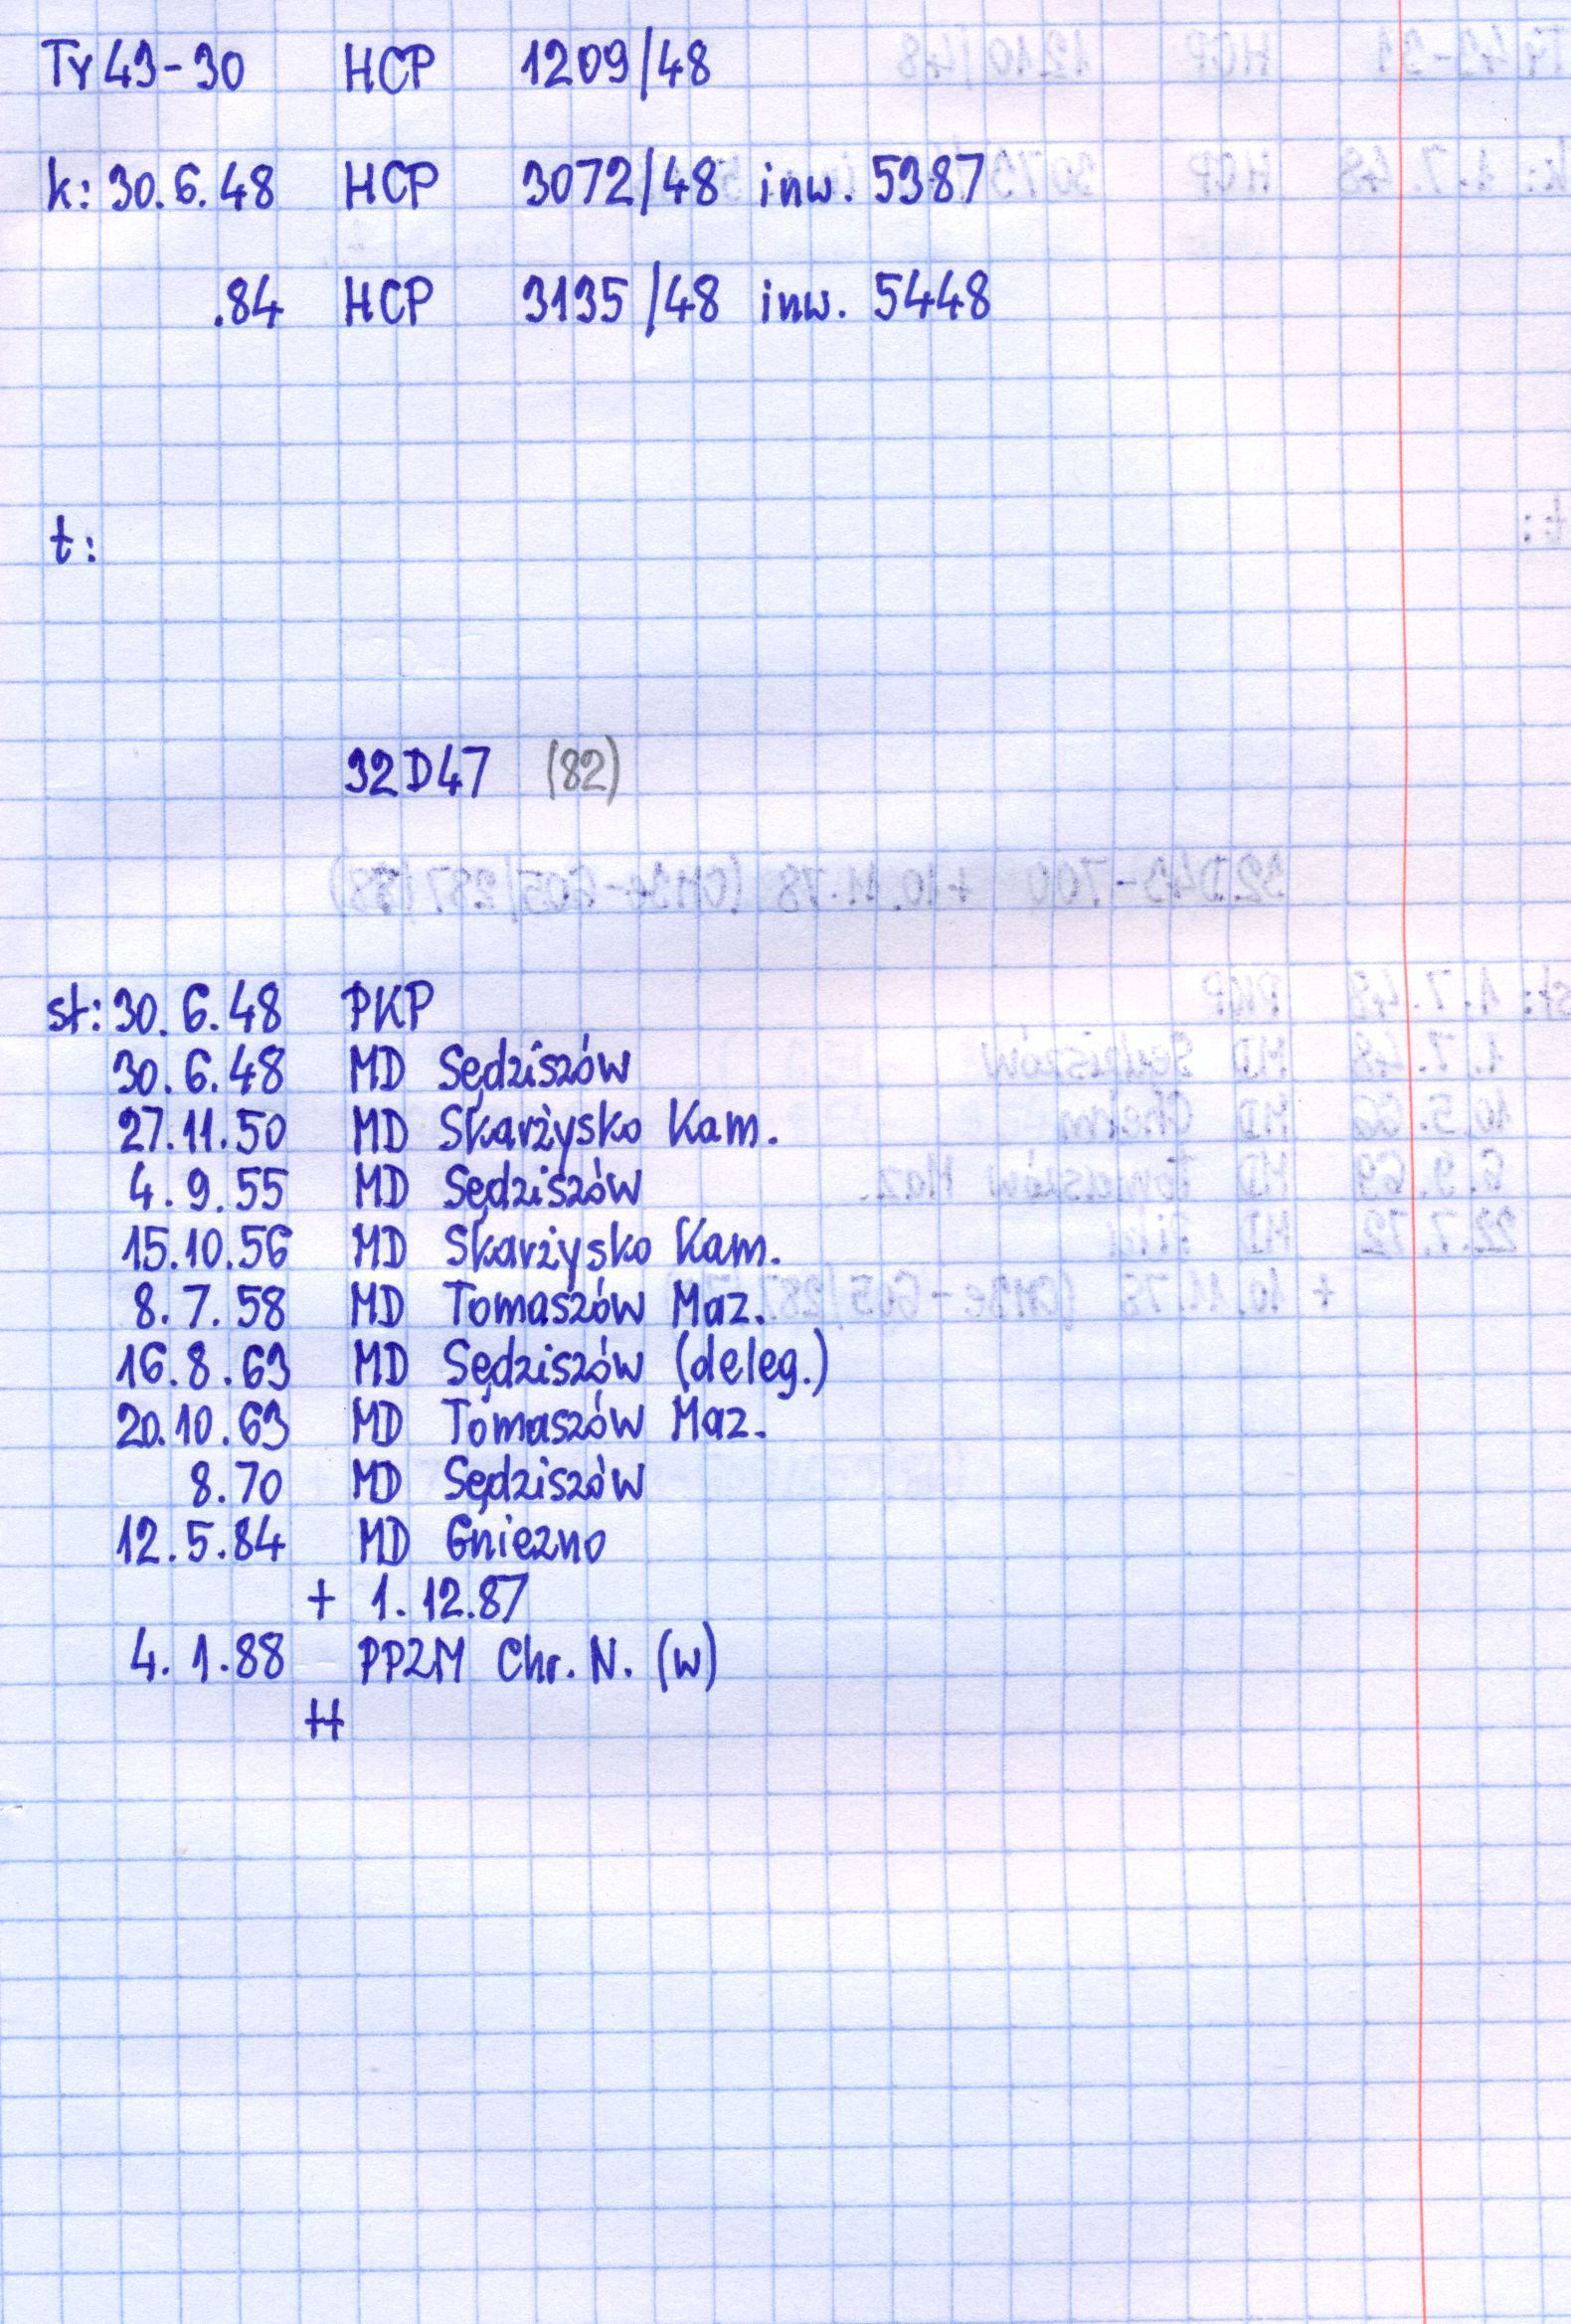 Ty43-30 HCP 1209/48
k: 30.6.48 HCP 3072/48 inw. 5387
.84 HCP 3135/48 inw. 5448
t:
32D47 (82)
st: 30.6.48 PKP
30.6.48 MD Sędziszów
27.11.50 MD Skarżysko Kam.
4.9.55 MD Sędziszów
15.10.56 MD Skarżysko Kam.
8.7.58 MD Tomaszów Maz.
16.8.63 MD Sędziszów (deleg.)
20.10.63 MD Tomaszów Maz.
8.70 MD Sędziszów
12.5.84 MD Gniezno
+ 1.12.87
4.1.88 PPZM Chr. N. (w)
++